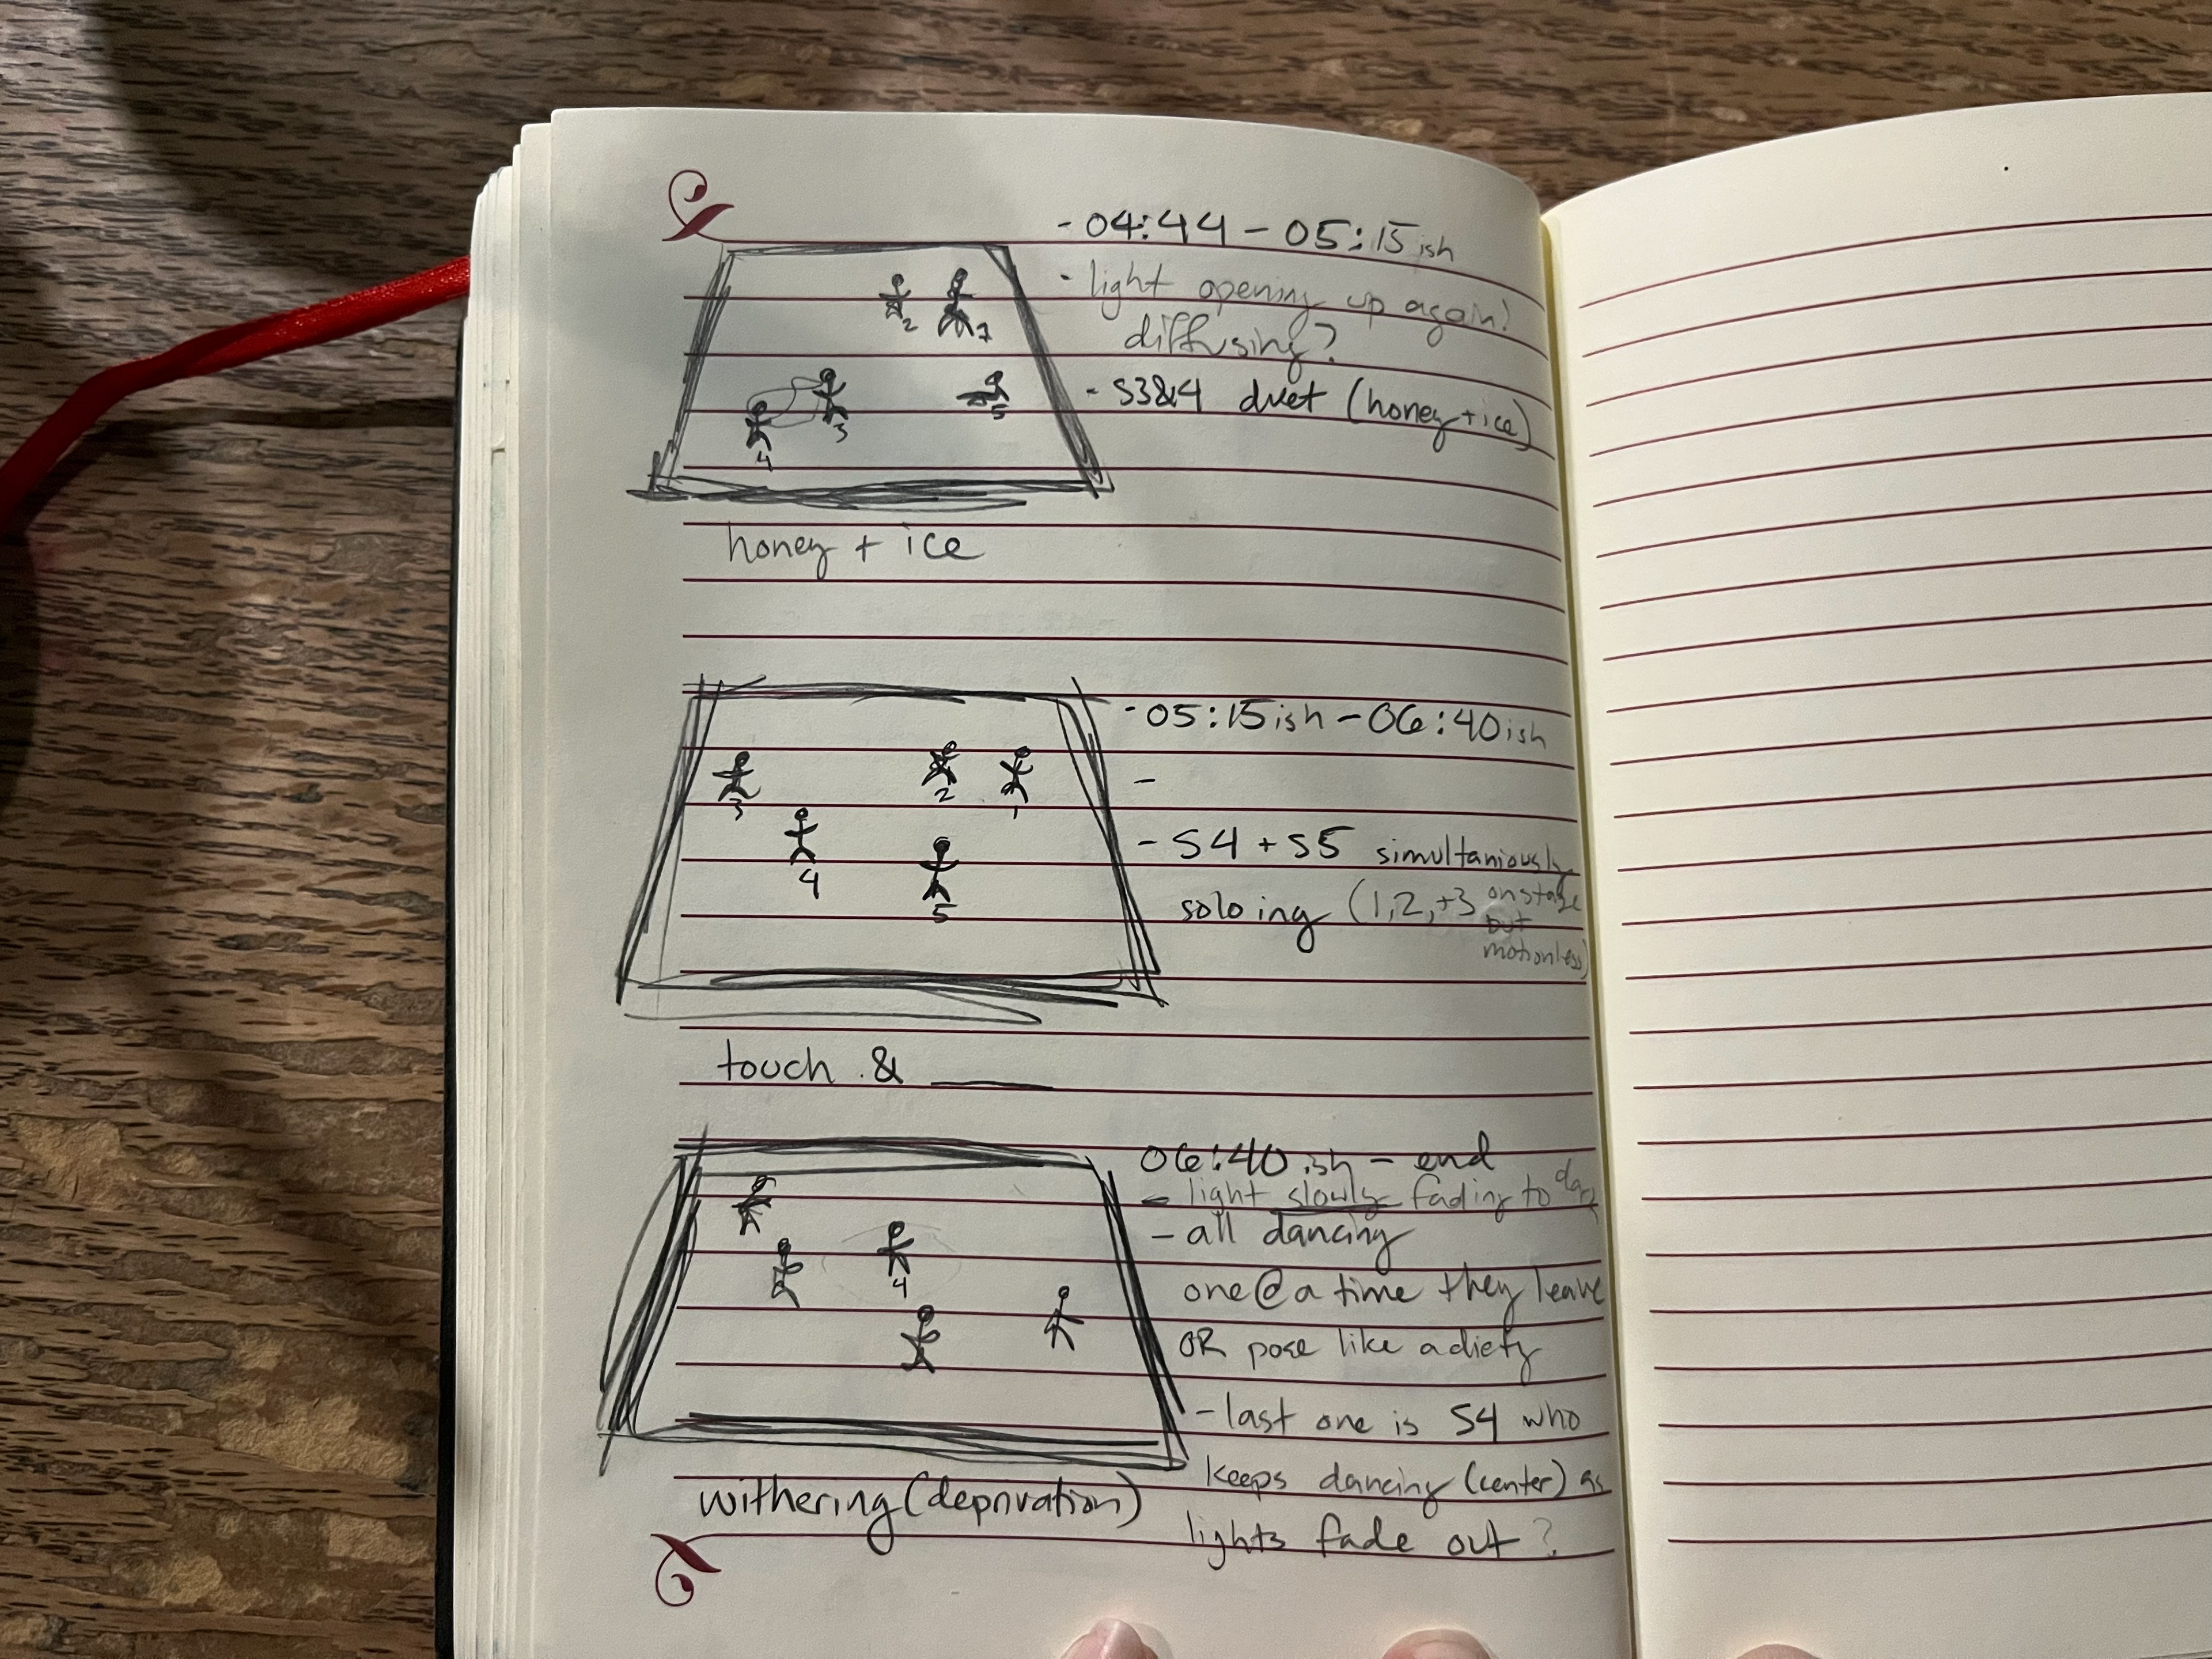 - 04:44 - 05:15ish
- light opening up again?
diffusing?
- S3&4 duet (honey + ice)
2
1
3
5
4
honey + ice
- 05:15ish - 06:40ish
-
- S4 + S5 simultaniously
soloing (1,2,+3 onstage
but
motionless)
3
2
1
4
5
touch & ____
06:40ish - end
- light slowly fading to dark
- all dancing
one @ a time they leave
OR pose like a diety
- last one is S4 who
keeps dancing (center) as
lights fade out?
4
withering (deprivation)